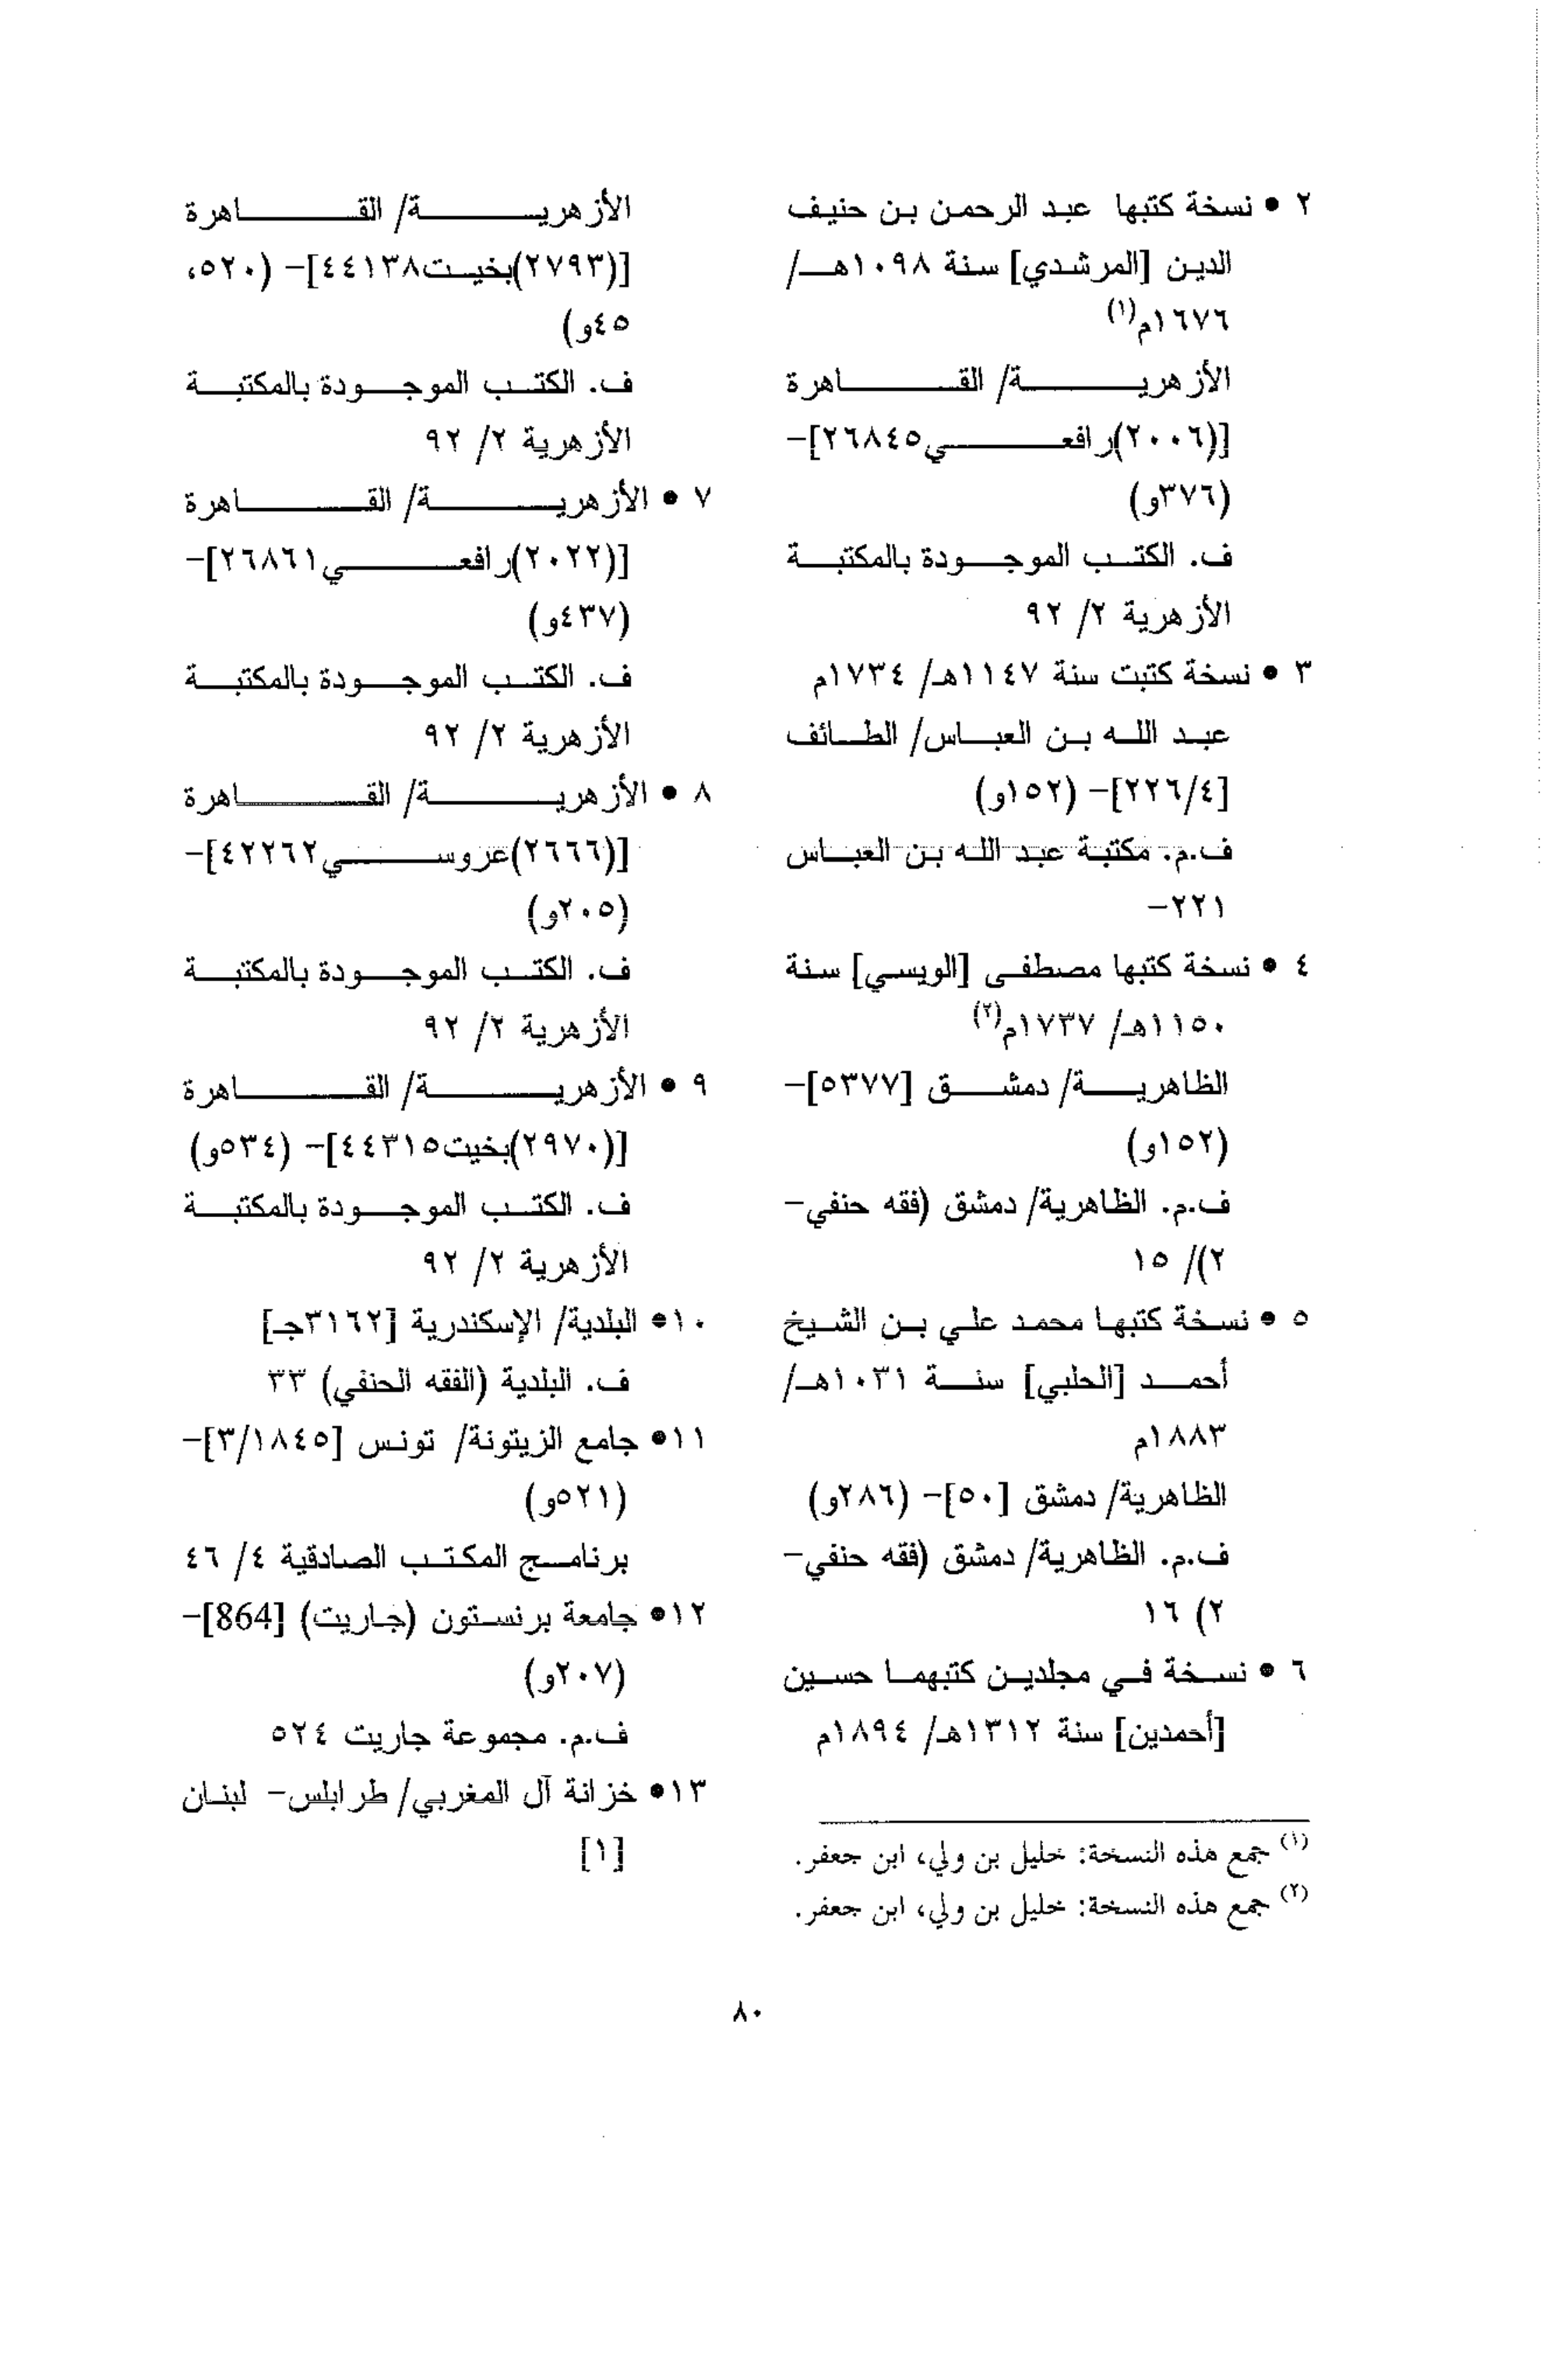 ٢ • نسخة كتبها عبد الرحمن بن حنيف
الدين [المرشدي] سنة ١٠٩٨هـ/
١٦٧٦م(١)
الأزهرية/ القاهرة
[(٢٠٠٦)رافعي٢٦٨٤٥]-
(٣٧٦و)
ف. الكتب الموجودة بالمكتبة
الأزهرية ٢/ ٩٢
٣ • نسخة كتبت سنة ١١٤٧هـ/ ١٧٣٤م
عبد الله بن العباس/ الطائف
[٢٢٦/٤]- (١٥٢و)
ف.م. مكتبة عبد الله بن العباس
٢٢١-
٤ • نسخة كتبها مصطفى [الويسي] سنة
١١٥٠هـ/ ١٧٣٧م(٢)
الظاهرية/ دمشق [٥٣٧٧]-
(١٥٢و)
ف.م. الظاهرية/ دمشق (فقه حنفي-
٢)/ ١٥
٥ • نسخة كتبها محمد علي بن الشيخ
أحمد [الحلبي] سنة ١٠٣١هـ/
١٨٨٣م
الظاهرية/ دمشق [٥٠]- (٢٨٦و)
ف.م. الظاهرية/ دمشق (فقه حنفي-
٢) ١٦
٦ • نسخة في مجلدين كتبهما حسين
[أحمدين] سنة ١٣١٢هـ/ ١٨٩٤م
(١) جمع هذه النسخة: خليل بن ولي، ابن جعفر.
(٢) جمع هذه النسخة: خليل بن ولي، ابن جعفر.
الأزهرية/ القاهرة
[(٢٧٩٣)بخيت٤٤١٣٨]- (٥٢٠،
٤٥و)
ف. الكتب الموجودة بالمكتبة
الأزهرية ٢/ ٩٢
٧ • الأزهرية/ القاهرة
[(٢٠٢٢)رافعي٢٦٨٦١]-
(٤٣٧و)
ف. الكتب الموجودة بالمكتبة
الأزهرية ٢/ ٩٢
٨ • الأزهرية/ القاهرة
[(٢٦٦٦)عروسي٤٢٢٦٢]-
(٢٠٥و)
ف. الكتب الموجودة بالمكتبة
الأزهرية ٢/ ٩٢
٩ • الأزهرية/ القاهرة
[(٢٩٧٠)بخيت٤٤٣١٥]- (٥٣٤و)
ف. الكتب الموجودة بالمكتبة
الأزهرية ٢/ ٩٢
١٠• البلدية/ الإسكندرية [٣١٦٢جـ]
ف. البلدية (الفقه الحنفي) ٣٣
١١• جامع الزيتونة/ تونس [٣/١٨٤٥]-
(٥٢١و)
برنامج المكتب الصادقية ٤/ ٤٦
١٢• جامعة برنستون (جاريت) [864]-
(٢٠٧و)
ف.م. مجموعة جاريت ٥٢٤
١٣• خزانة آل المغربي/ طرابلس- لبنان
[١]
٨٠